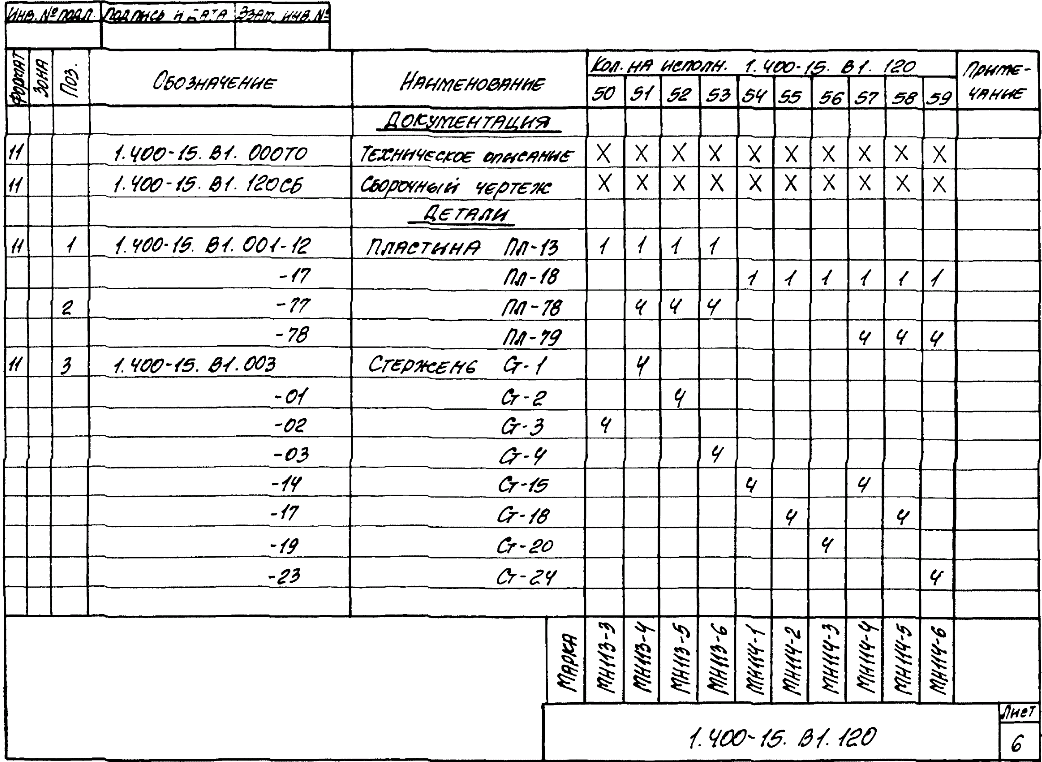 Инв. № подл. Подпись и дата Взам. инв. №
Формат Зона Поз. Обозначение Наименование Кол. на исполн. 1.400-15.В1.120 Примечание
50 51 52 53 54 55 56 57 58 59
Документация
11 1.400-15.В1.000ТО Техническое описание X X X X X X X X X X
11 1.400-15.В1.120СБ Сборочный чертеж X X X X X X X X X X
Детали
11 1 1.400-15.В1.001-12 Пластина Пл-13 1 1 1 1
-17 Пл-18 1 1 1 1 1 1
2 -77 Пл-78 4 4 4
-78 Пл-79 4 4 4
11 3 1.400-15.В1.003 Стержень Ст-1 4
-01 Ст-2 4
-02 Ст-3 4
-03 Ст-4 4
-14 Ст-15 4 4
-17 Ст-18 4 4
-19 Ст-20 4
-23 Ст-24 4
Марка МН113-3 МН113-4 МН113-5 МН113-6 МН114-1 МН114-2 МН114-3 МН114-4 МН114-5 МН114-6
1.400-15.В1.120
Лист
6